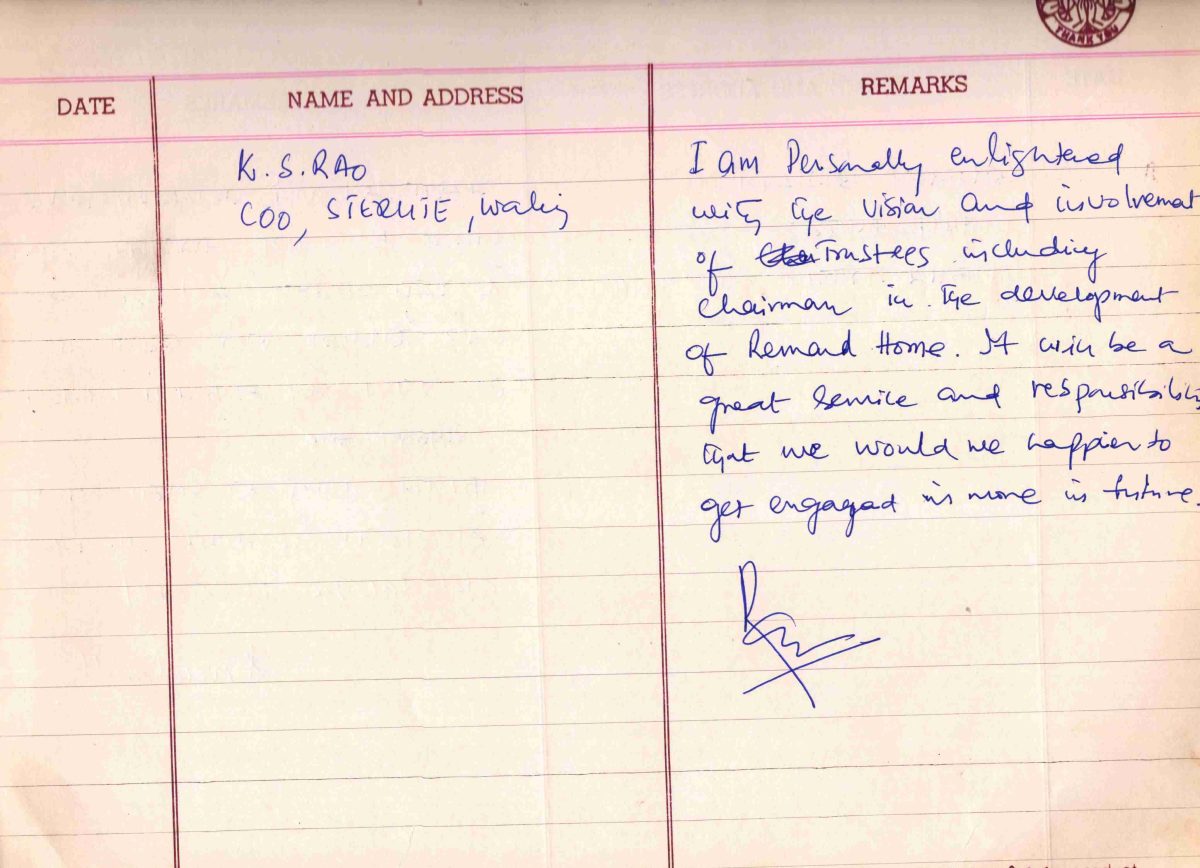 THANK YOU
DATE
NAME AND ADDRESS
REMARKS
K. S. RAO
COO, STERLITE,
I am Personally enlightened
with the vision and involvemat
of Trustees including
Chairman in the development
of Remand Home. It will be a
great Service and responsibility
that we would we happier to
get engaged in more in future.